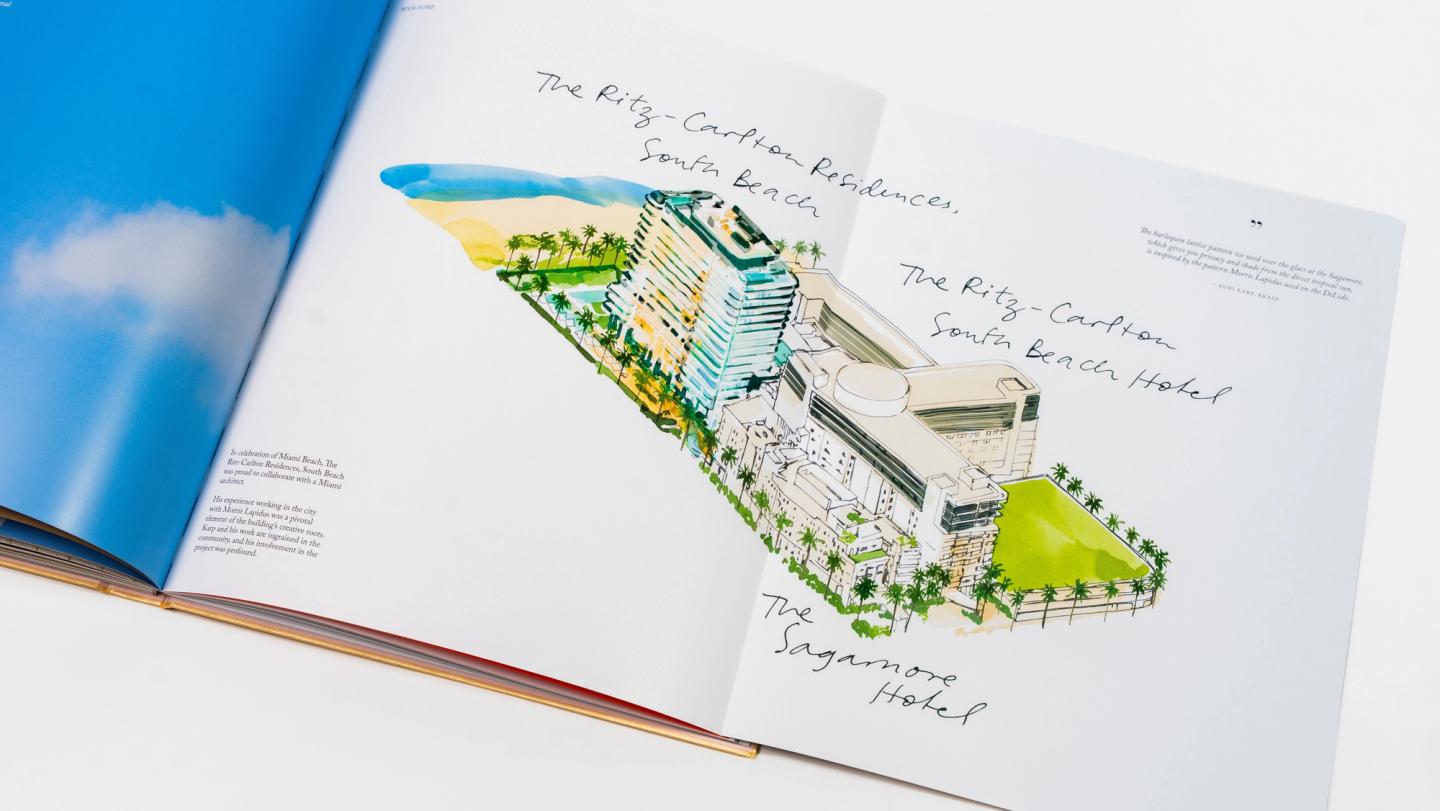 YOUR HOME
The Ritz-Carlton Residences,
South Beach
The Ritz-Carlton
South Beach Hotel
The
Sagamore
Hotel
”
The harlequin lattice pattern we used over the glass at the Sagamore,
which gives you privacy and shade from the direct tropical sun,
is inspired by the pattern Morris Lapidus used on the DiLido.
— KOBI KARP, AKAID
In celebration of Miami Beach, The
Ritz-Carlton Residences, South Beach
was proud to collaborate with a Miami
architect.
His experience working in the city
with Morris Lapidus was a pivotal
element of the building's creative roots.
Karp and his work are ingrained in the
community, and his involvement in the
project was profound.